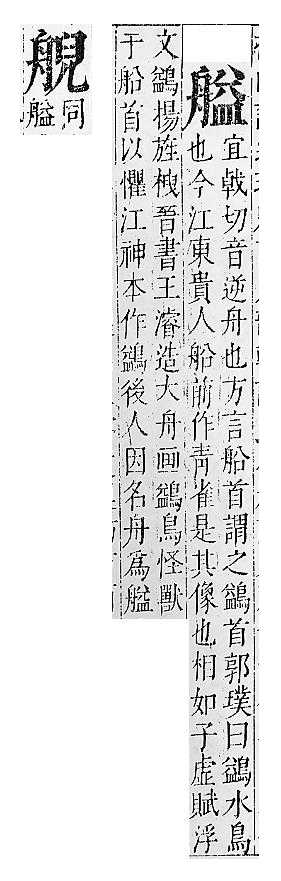 艗
宜戟切音逆舟也方言船首謂之鷁首郭璞曰鷁水鳥
也今江東貴人船前作青雀是其像也相如子虛賦浮
文鷁楊旌栧晉書王濬造大舟画鷁鳥怪獸
于船首以懼江神本作鷁後人因名舟爲艗
同
艗